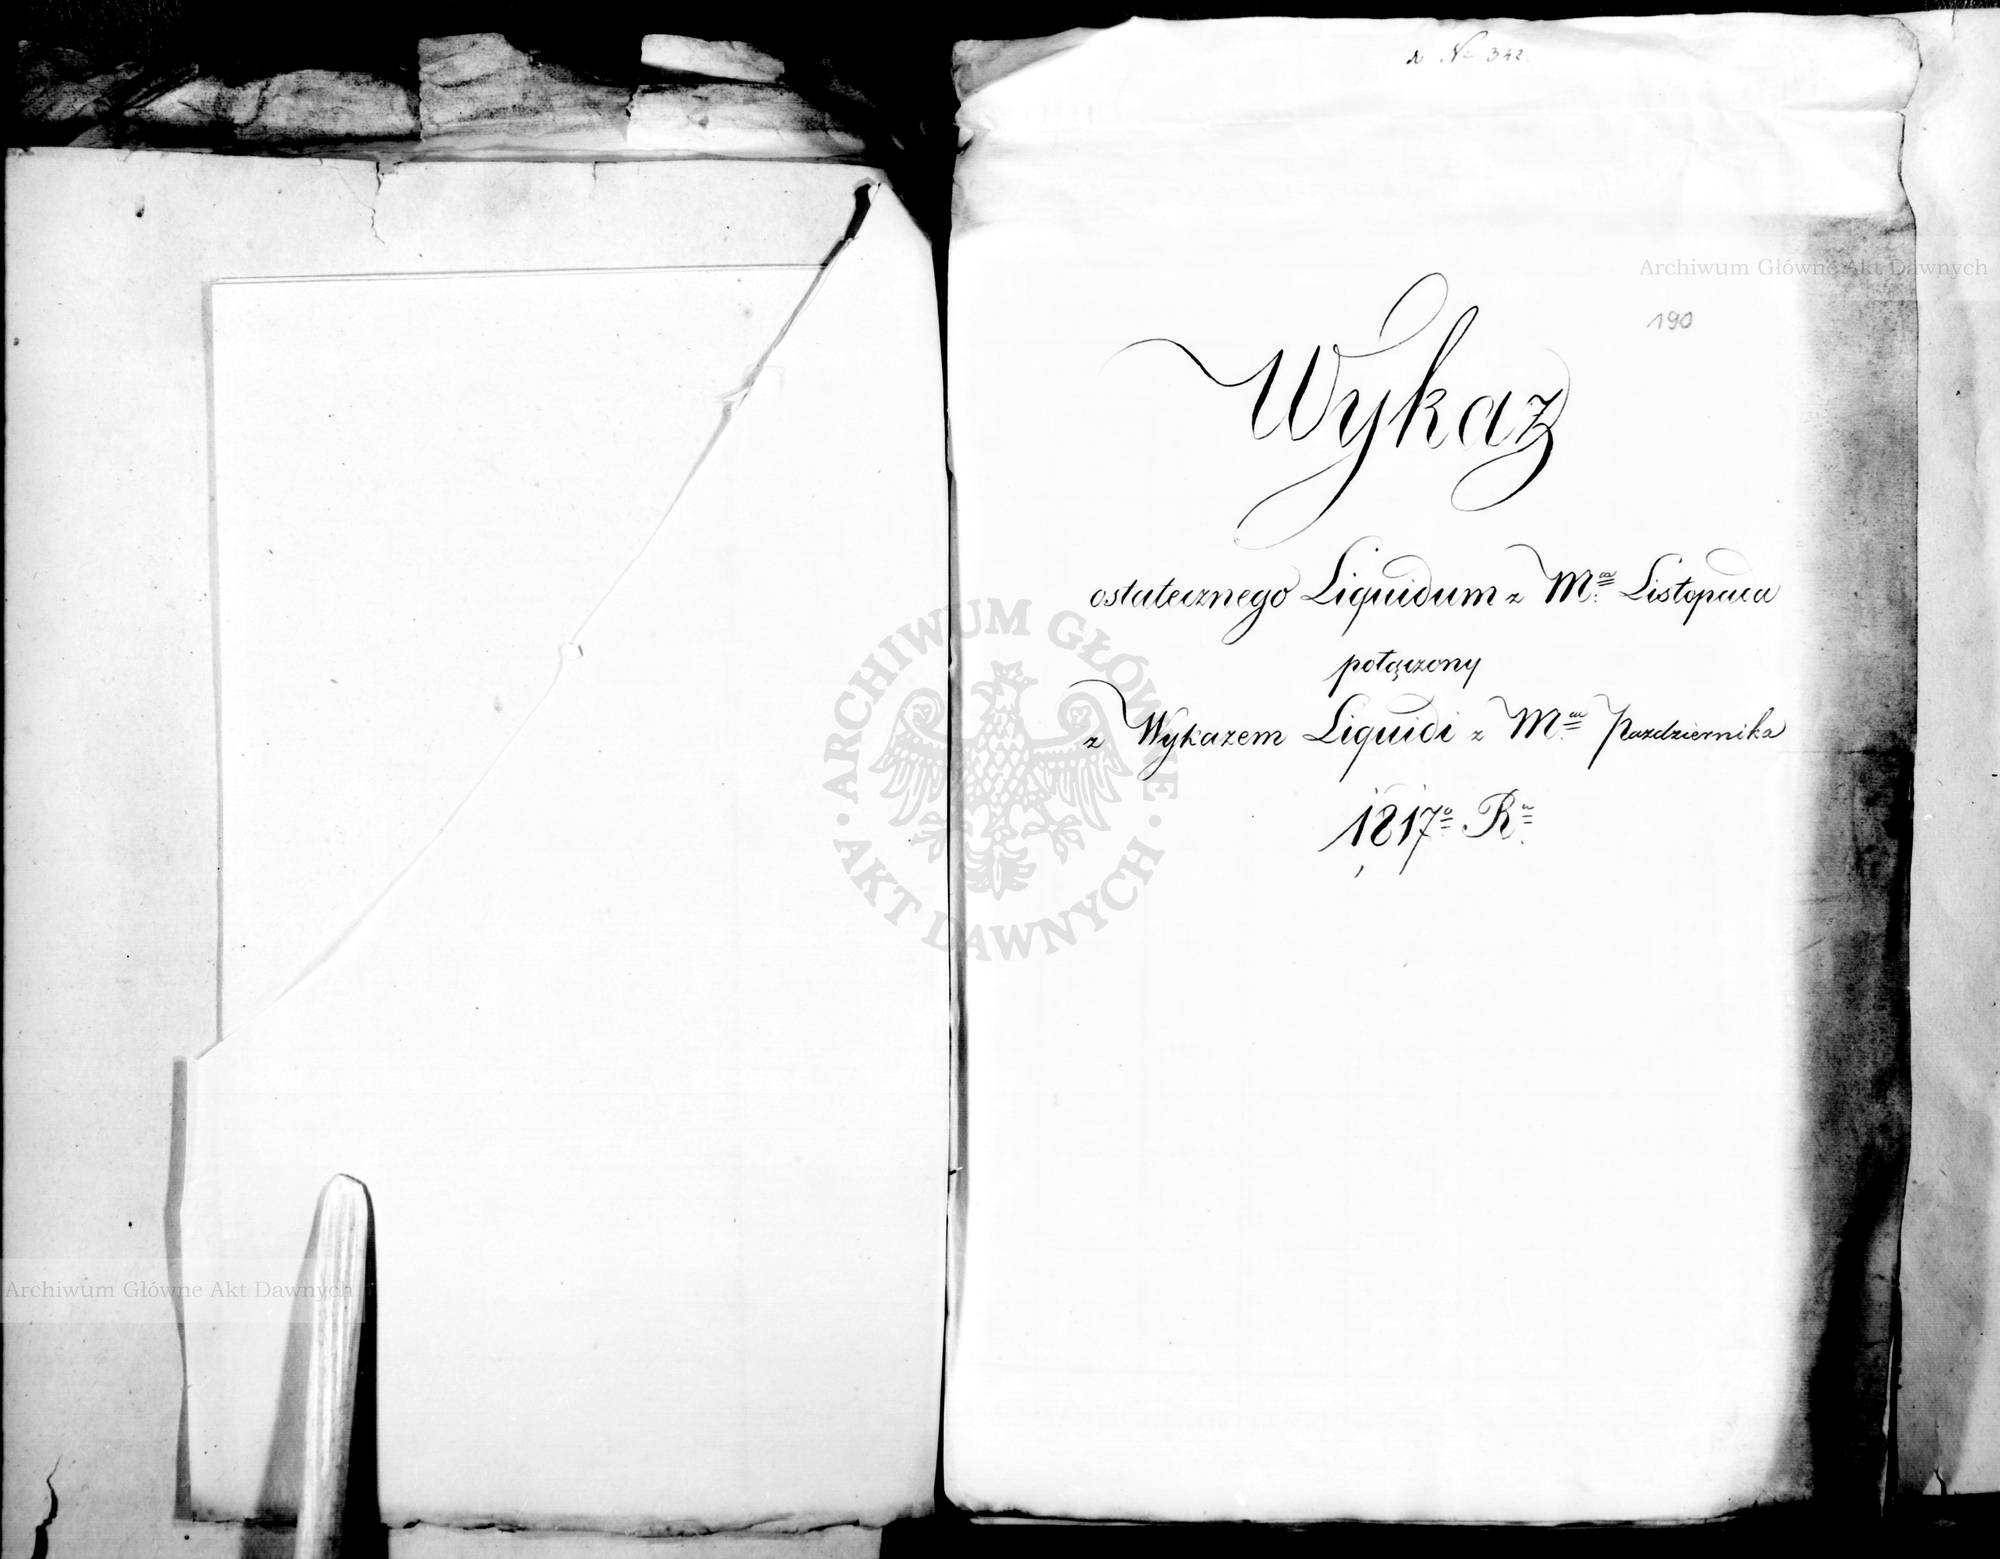 № 342.
190
Wykaz
ostatecznego Liquidum z M:ca Listopada
połączony
z Wykazem Liquidi z M:ca Pazdziernika
1817º Rª
Archiwum Główne Akt Dawnych
ARCHIWUM GŁÓWNE · AKT DAWNYCH ·
Archiwum Główne Akt Dawnych